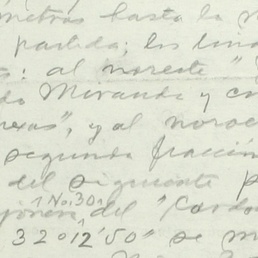 metros hasta la
partida; los lind
: al noreste "
do Miranda y co
exas", y al noroe
segunda fracción
del siguiente p
1 No. 30a
del "Cardo
32012'50" se m